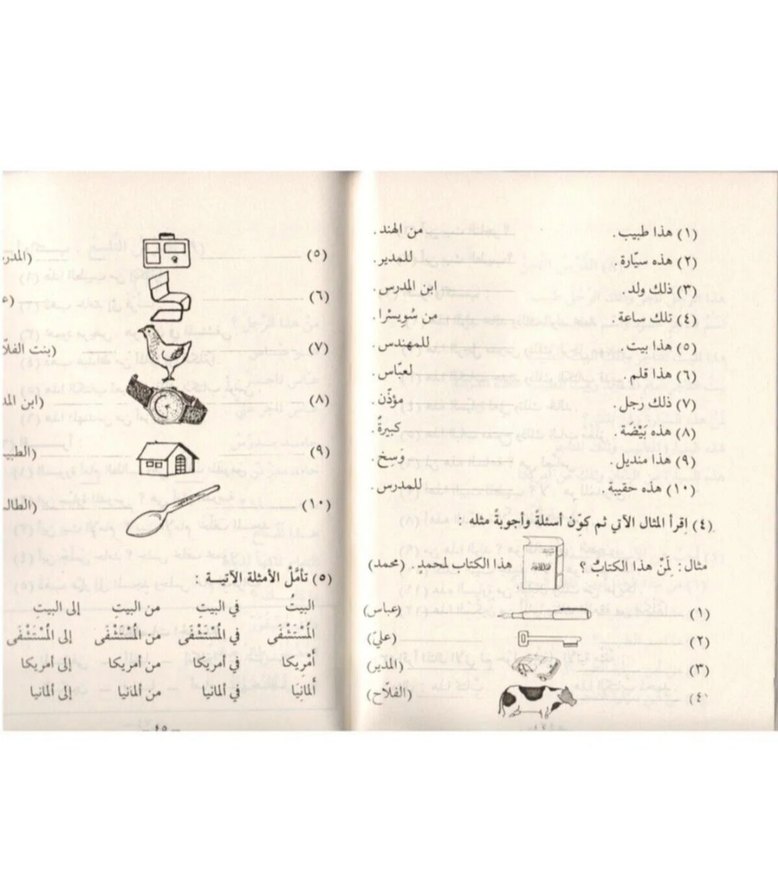 (١) هذا طبيب. من الهند.
(٢) هذه سيّارة. للمدير.
(٣) ذلك ولد. ابن المدرس.
(٤) تلك ساعة. من سُوِيسْرا.
(٥) هذا بيت. للمهندس.
(٦) هذا قلم. لعبّاس.
(٧) ذلك رجل. مؤذّن.
(٨) هذه بَيْضَة. كبيرةٌ.
(٩) هذا منديل. وَسِخ.
(١٠) هذه حقيبة. للمدرس.
(٤) اِقرأ المثال الآتي ثم كوّن أسئلةً وأجوبةً مثله :
مثال: لِمَنْ هذا الكتابُ ؟ هذا الكتاب لمحمدٍ. (محمد)
(١) (عباس)
(٢) (عليّ)
(٣) (المدير)
(٤) (الفلّاح)
(٥)
(٦)
(٧) (بنت
(٨) (ابن
(٩)
(١٠)
(٥) تأمَّلْ الأمثلة الآتيـة :
البيتُ في البيتِ من البيتِ إلى البيتِ
المُسْتَشْفَى في المُسْتَشْفَى من المُسْتَشْفَى إلى المُسْتَشْفَى
أَمْرِيكا في أمريكا من أمريكا إلى أمريكا
أَلمانِيَا في ألمانيا من ألمانيا إلى ألمانيا
— ٤٥ —